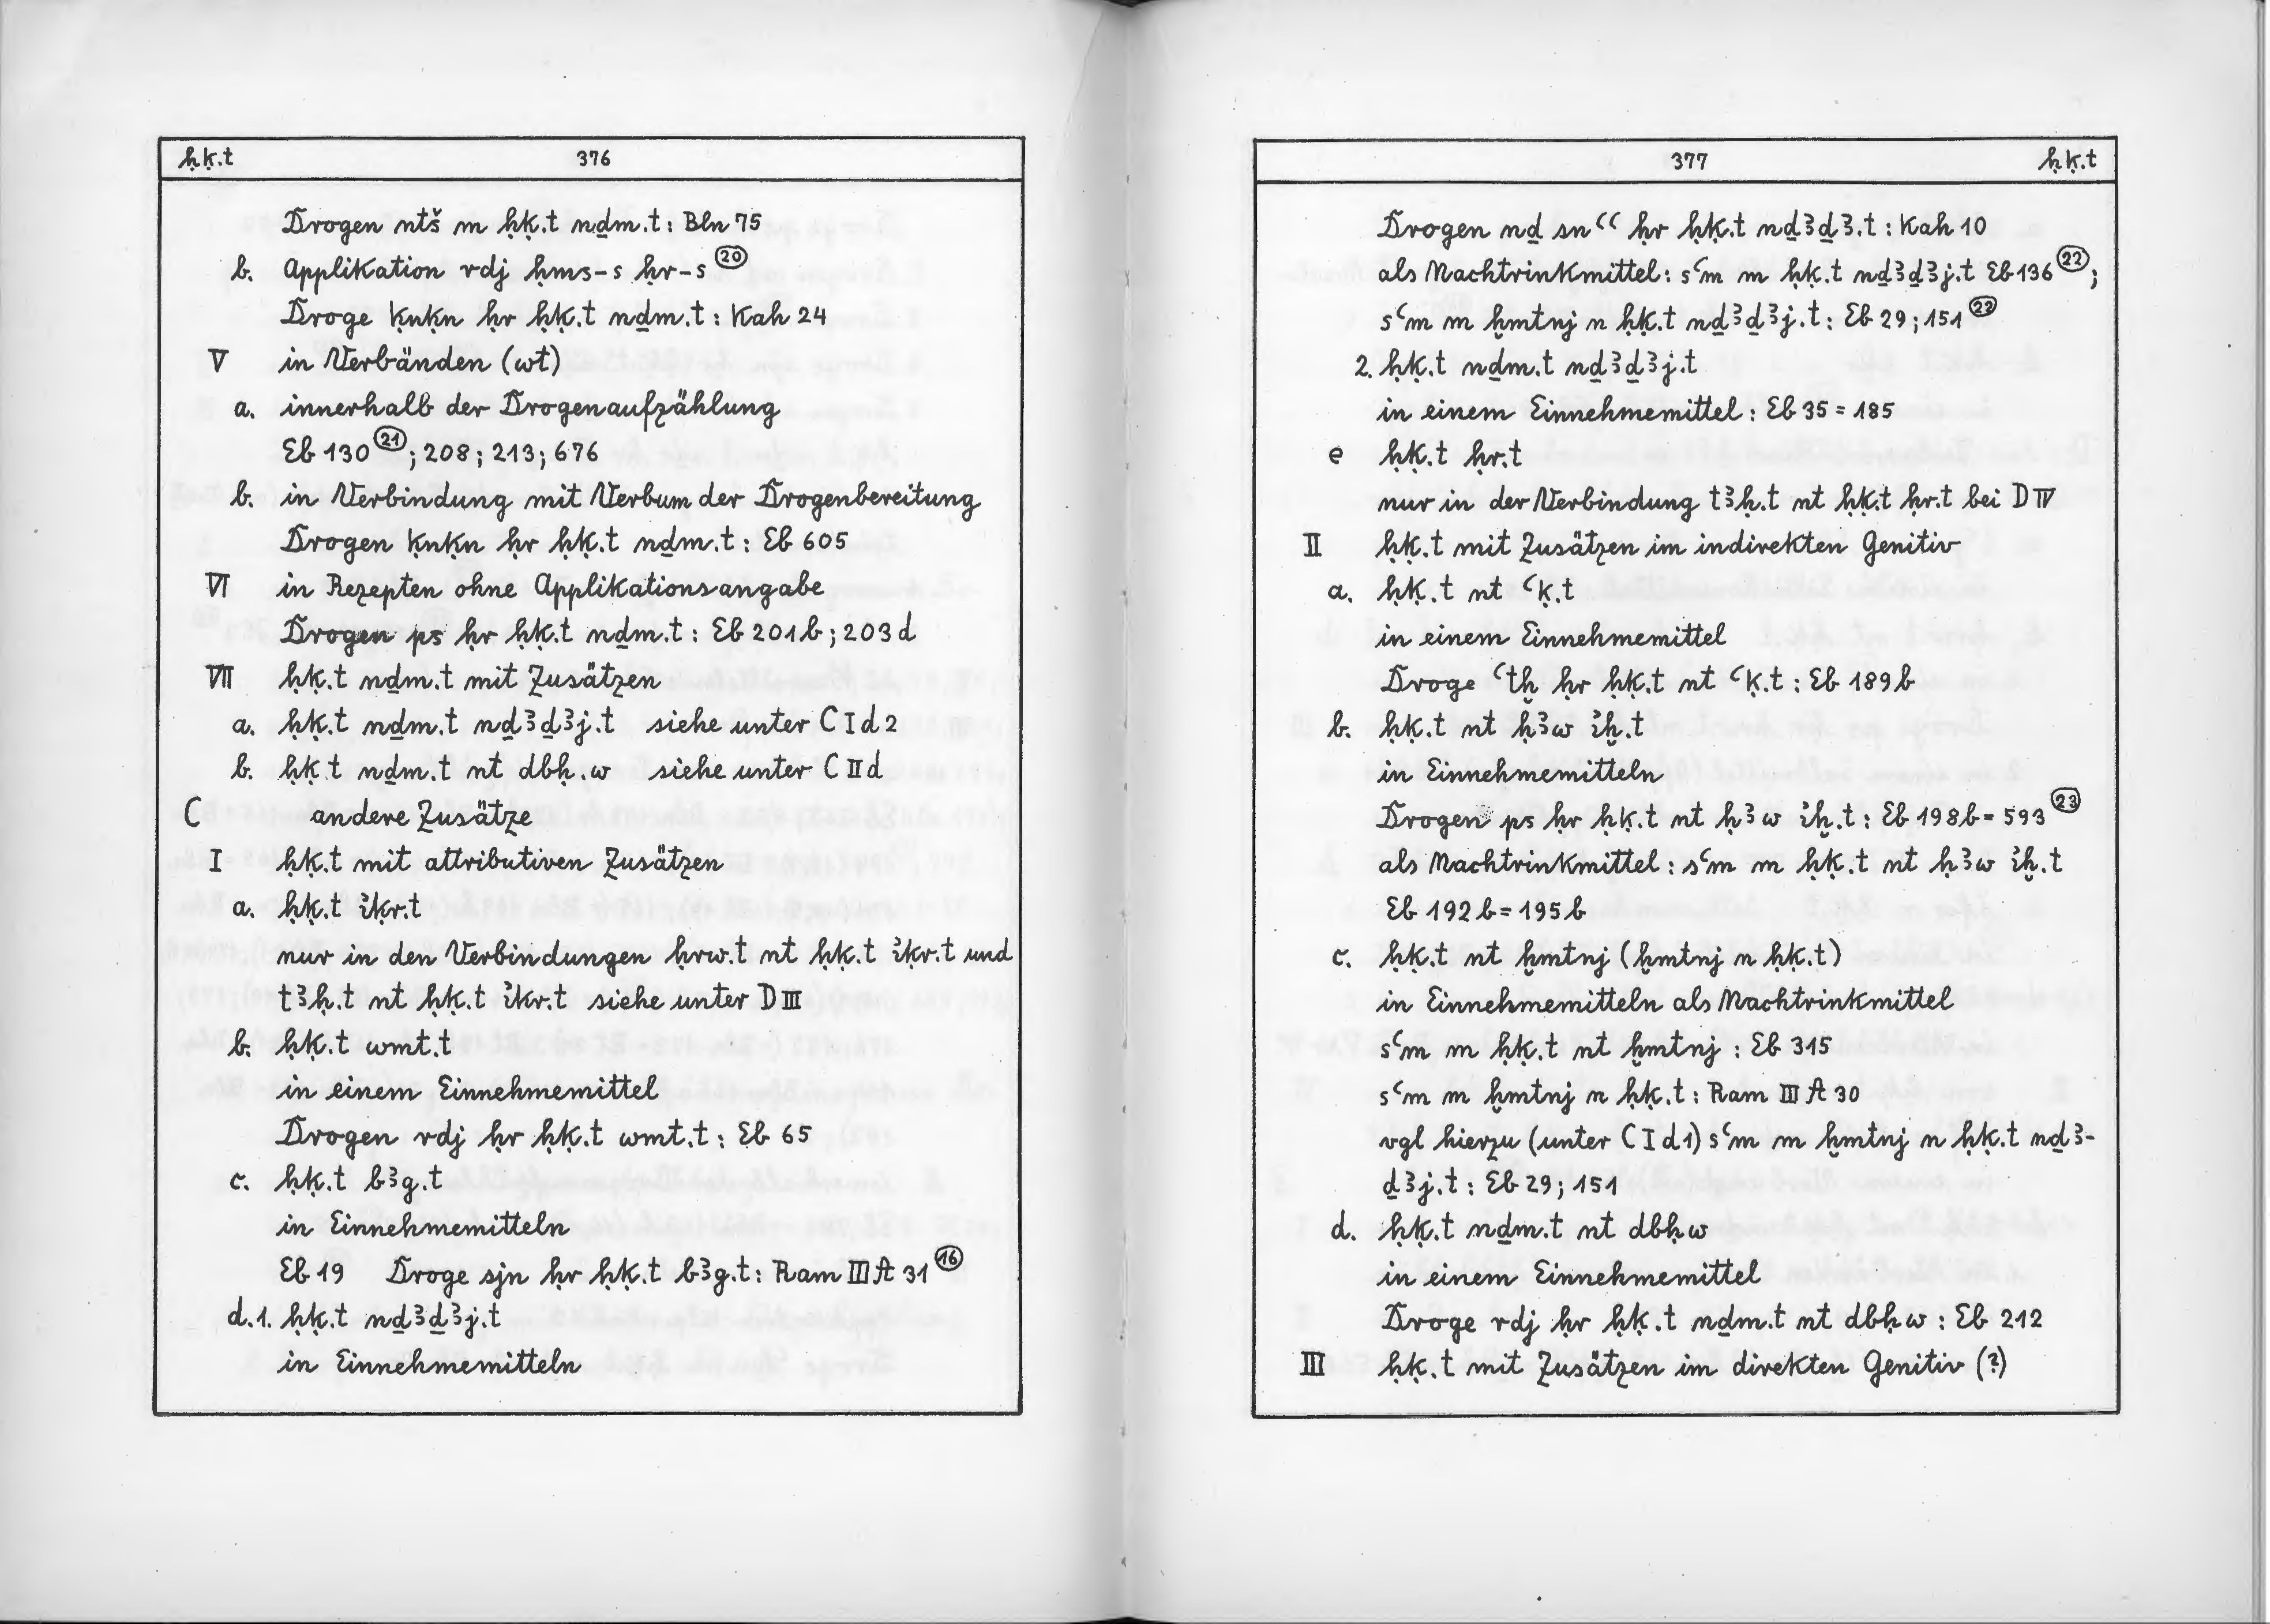 ḥḳ.t 376
Drogen ntš m ḥḳ.t nḏm.t : Bln 75
b. Applikation rdj ḥms-s ḥr-s ⑳
Droge ḳnḳn ḥr ḥḳ.t nḏm.t : Kah 24
V in Verbänden (wt)
a. innerhalb der Drogenaufzählung
Eb 130 ㉑ ; 208 ; 213 ; 676
b. in Verbindung mit Verbum der Drogenbereitung
Drogen ḳnḳn ḥr ḥḳ.t nḏm.t : Eb 605
VI in Rezepten ohne Applikationsangabe
Drogen ps ḥr ḥḳ.t nḏm.t : Eb 201b ; 203d
VII ḥḳ.t nḏm.t mit Zusätzen
a. ḥḳ.t nḏm.t nḏꜣḏꜣj.t siehe unter C I d 2
b. ḥḳ.t nḏm.t nt dbḥ.w siehe unter C II d
C andere Zusätze
I ḥḳ.t mit attributiven Zusätzen
a. ḥḳ.t ỉḳr.t
nur in den Verbindungen ẖrw.t nt ḥḳ.t ỉḳr.t und
tꜣḥ.t nt ḥḳ.t ỉḳr.t siehe unter D III
b. ḥḳ.t wmt.t
in einem Einnehmemittel
Drogen rdj ḥr ḥḳ.t wmt.t : Eb 65
c. ḥḳ.t bꜣg.t
in Einnehmemitteln
Eb 19 Droge sjn ḥr ḥḳ.t bꜣg.t : Ram III A 31 ⑯
d.1. ḥḳ.t nḏꜣḏꜣj.t
in Einnehmemitteln
377 ḥḳ.t
Drogen nḏ snꜥꜥ ḥr ḥḳ.t nḏꜣḏꜣ.t : Kah 10
als Nachtrinkmittel : sꜥm m ḥḳ.t nḏꜣḏꜣj.t Eb 136 ㉒ ;
sꜥm m ḫmtnj n ḥḳ.t nḏꜣḏꜣj.t : Eb 29 ; 151 ㉒
2. ḥḳ.t nḏm.t nḏꜣḏꜣj.t
in einem Einnehmemittel : Eb 35 = 185
e ḥḳ.t ẖr.t
nur in der Verbindung tꜣḥ.t nt ḥḳ.t ẖr.t bei D IV
II ḥḳ.t mit Zusätzen im indirekten Genitiv
a. ḥḳ.t nt ꜥḳ.t
in einem Einnehmemittel
Droge ꜥtḫ ḥr ḥḳ.t nt ꜥḳ.t : Eb 189b
b. ḥḳ.t nt ḥꜣw ỉḫ.t
in Einnehmemitteln
Drogen ps ḥr ḥḳ.t nt ḥꜣw ỉḫ.t : Eb 198b = 593 ㉓
als Nachtrinkmittel : sꜥm m ḥḳ.t nt ḥꜣw ỉḫ.t
Eb 192b = 195b
c. ḥḳ.t nt ḫmtnj (ḫmtnj n ḥḳ.t)
in Einnehmemitteln als Nachtrinkmittel
sꜥm m ḥḳ.t nt ḫmtnj : Eb 315
sꜥm m ḫmtnj n ḥḳ.t : Ram III A 30
vgl hierzu (unter C I d 1) sꜥm m ḫmtnj n ḥḳ.t nḏꜣ-
ḏꜣj.t : Eb 29 ; 151
d. ḥḳ.t nḏm.t nt dbḥw
in einem Einnehmemittel
Droge rdj ḥr ḥḳ.t nḏm.t nt dbḥw : Eb 212
III ḥḳ.t mit Zusätzen im direkten Genitiv (?)